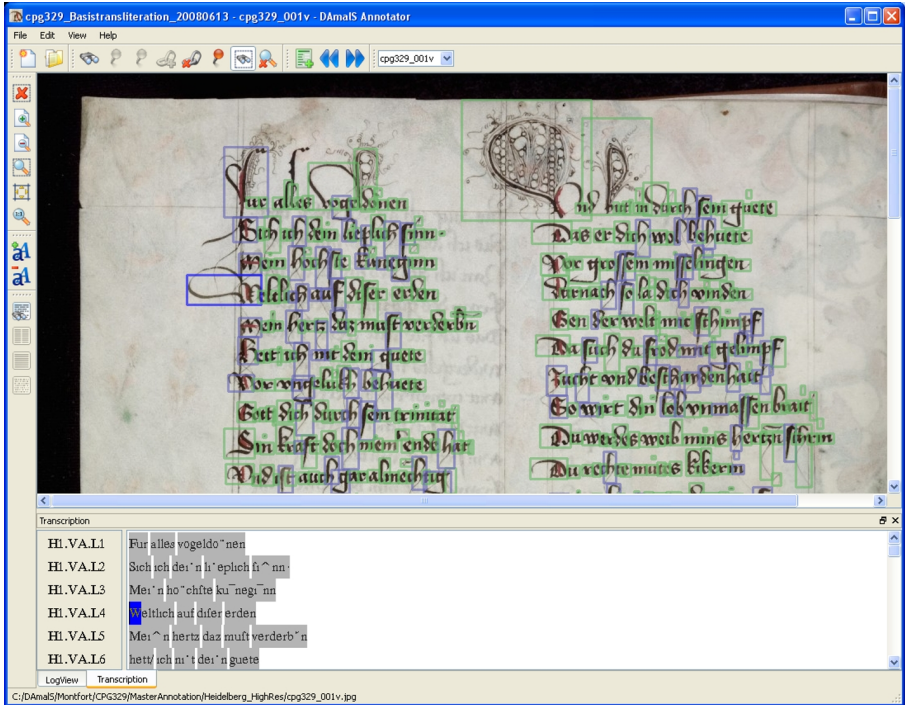 cpg329_Basistransliteration_20080613 - cpg329_001v - DAmalS Annotator
File Edit View Help
cpg329_001v
Fur alles vogeldonen
Sich ich dein lieplich ſinn·
Mein hochſte kuneginn
Weltlich auf diſer erden
Mein hertz daz muſt verderbn
Hett ich nit dein guete
Vor vngeluckh behuete
Gott dich durch ſein trinitat
Sin kraft doch ende hat
Vnd iſt auch gar almechtig
durch ſein guete
Das er dich wol behuete
Vor groſſem miſſelingen
Darnach ſo la dich winden
Gen der welt mit ſchimpf
Da ſuch du frod mit gelimpf
Zucht vnd
So wirt din lob vnmaſſen brait
Du werdes weib mins hertzn ſchrin
Du rechte mutes
Transcription
H1.VA.L1 Fur alles vogeldo¨nen
H1.VA.L2 Sıch ıch deı˙n lı˙eplıch ſı^nn·
H1.VA.L3 Meı˙n ho¨chſte ku¯negı¯nn
H1.VA.L4 Weltlıch auf dıſer erden
H1.VA.L5 Meı^n hertz daz muſt verderb˜n
H1.VA.L6 hett/ıch nı˙t deı˙n guete
LogView Transcription
C:/DAmalS/Montfort/CPG329/MasterAnnotation/Heidelberg_HighRes/cpg329_001v.jpg